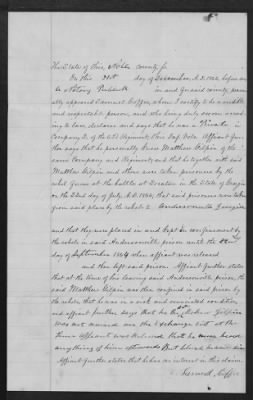 The State of Ohio, Noble County ss
On this 21st day of December A.D. 1882, before me
a Notary Publick in and for said county, person-
ally appeared Samuel Coffee, whom I certify to be a credible
and respectable person, and who being duly sworn accord-
ing to law, declares and says that he was a Private in
Company D. of the Regiment, Ohio Inf. Vols. Affiant fur-
ther says that he personally knew Matthew Gilpin of the
same Company and Regiment, and that he together with said
Matthew Gilpin and others were taken prisoners by the
rebel forces at the battle at Decatur in the State of Georgia
on the 22nd day of July, A.D. 1864; that said prisoners were taken
from said place by the rebels to Andersonville Georgia
and that they were placed in and kept in confinement by
the rebels in said Andersonville prison until the
day of September 1864 when affiant was released
and then left said prison. Affiant further states
that at the time of his leaving said Andersonville prison, the
said Matthew Gilpin was then confined in said prison by
the rebels that he was in a sick and emaciated condition,
and affiant further says that he the Mathew Gilpin
was not moved on the exchange out at the
time affiant was relieved that he never heard
anything of him afterwards
Affiant further states that he has no interest in this claim.
Samuel Coffee